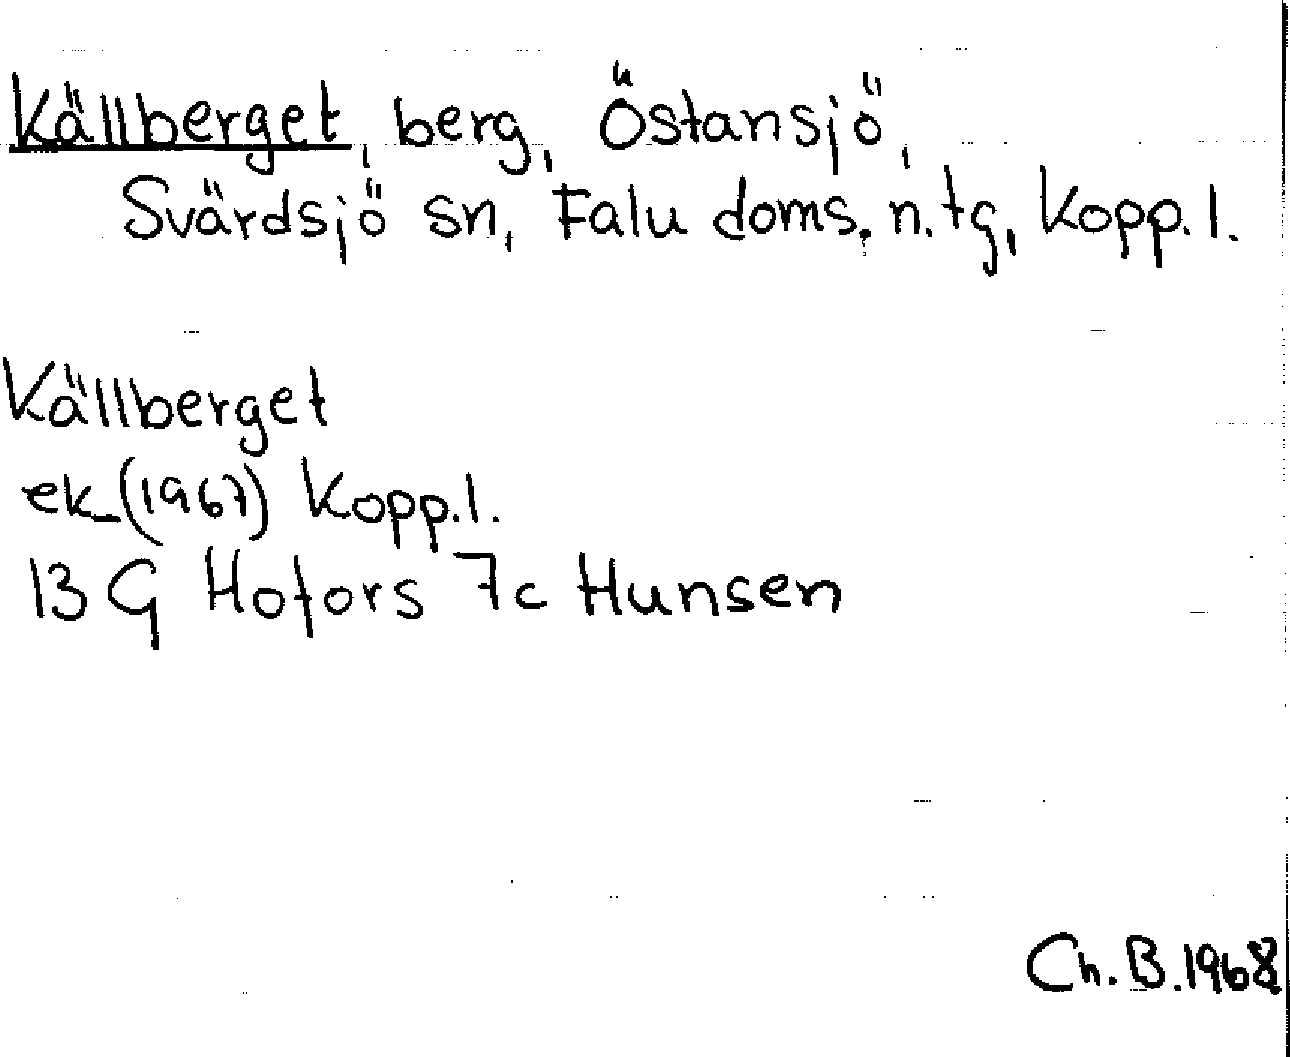 Källberget, berg, Östansjö,
Svärdsjö sn, Falu doms. n. tg, Kopp. l.
Källberget
ek (1967) Kopp. l.
13 G Hofors 7c Hunsen
Ch. B. 1968